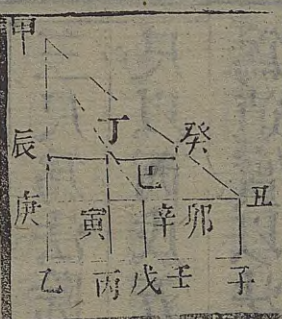 甲
丁 癸
辰
巳
庚 寅 辛 卯 丑
乙 丙 戊 壬 子